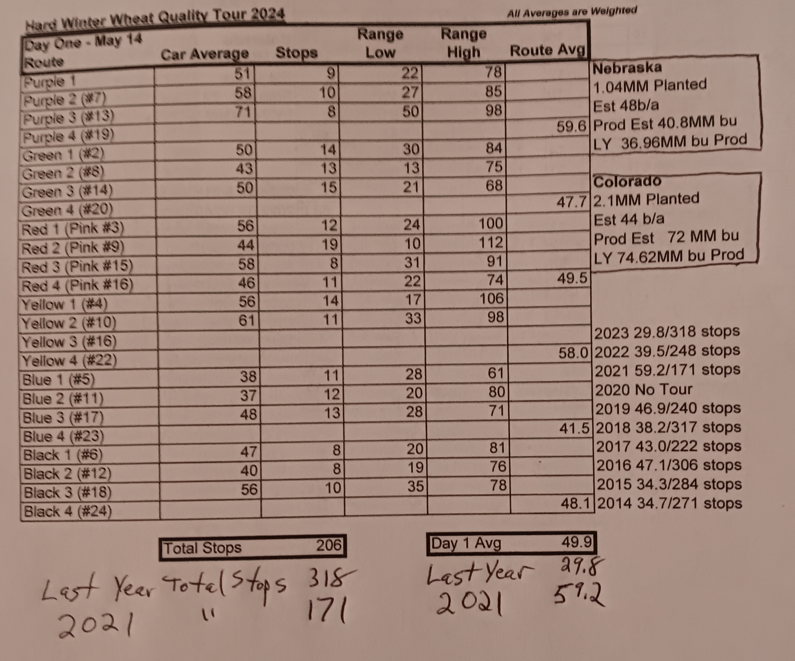 Hard Winter Wheat Quality Tour 2024 All Averages are Weighted
Day One - May 14 Range Range
Route Car Average Stops Low High Route Avg
Purple 1 51 9 22 78
Purple 2 (#7) 58 10 27 85
Purple 3 (#13) 71 8 50 98
Purple 4 (#19) 59.6
Green 1 (#2) 50 14 30 84
Green 2 (#8) 43 13 13 75
Green 3 (#14) 50 15 21 68
Green 4 (#20) 47.7
Red 1 (Pink #3) 56 12 24 100
Red 2 (Pink #9) 44 19 10 112
Red 3 (Pink #15) 58 8 31 91
Red 4 (Pink #16) 46 11 22 74 49.5
Yellow 1 (#4) 56 14 17 106
Yellow 2 (#10) 61 11 33 98
Yellow 3 (#16)
Yellow 4 (#22) 58.0
Blue 1 (#5) 38 11 28 61
Blue 2 (#11) 37 12 20 80
Blue 3 (#17) 48 13 28 71
Blue 4 (#23) 41.5
Black 1 (#6) 47 8 20 81
Black 2 (#12) 40 8 19 76
Black 3 (#18) 56 10 35 78
Black 4 (#24) 48.1
Nebraska
1.04MM Planted
Est 48b/a
Prod Est 40.8MM bu
LY 36.96MM bu Prod
Colorado
2.1MM Planted
Est 44 b/a
Prod Est 72 MM bu
LY 74.62MM bu Prod
2023 29.8/318 stops
2022 39.5/248 stops
2021 59.2/171 stops
2020 No Tour
2019 46.9/240 stops
2018 38.2/317 stops
2017 43.0/222 stops
2016 47.1/306 stops
2015 34.3/284 stops
2014 34.7/271 stops
Total Stops 206 Day 1 Avg 49.9
Last Year Total Stops 318 Last Year 29.8
2021 " 171 2021 59.2